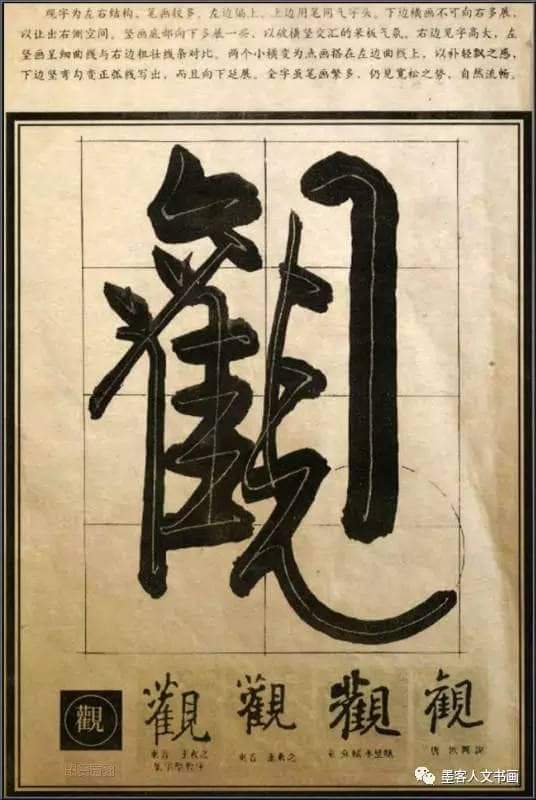 观字为左右结构，笔画较多。左边偏上，上边用笔同气字头。下边横画不可向右多展，
以让出右侧空间。竖画底部向下多展一些，以破横竖交汇的呆板气氛。右边见字高大，左
竖画呈细曲线与右边粗壮线条对比。两个小横变为点画搭在左边曲线上，以补轻飘之感，
下边竖弯勾变正弧线写出，而且向下延展。全字虽笔画繁多，仍见宽松之势，自然流畅。
觀
觀
觀 觀 觀 觀
东晋 王羲之
集字圣教序
东晋 王羲之
墨客人文书画